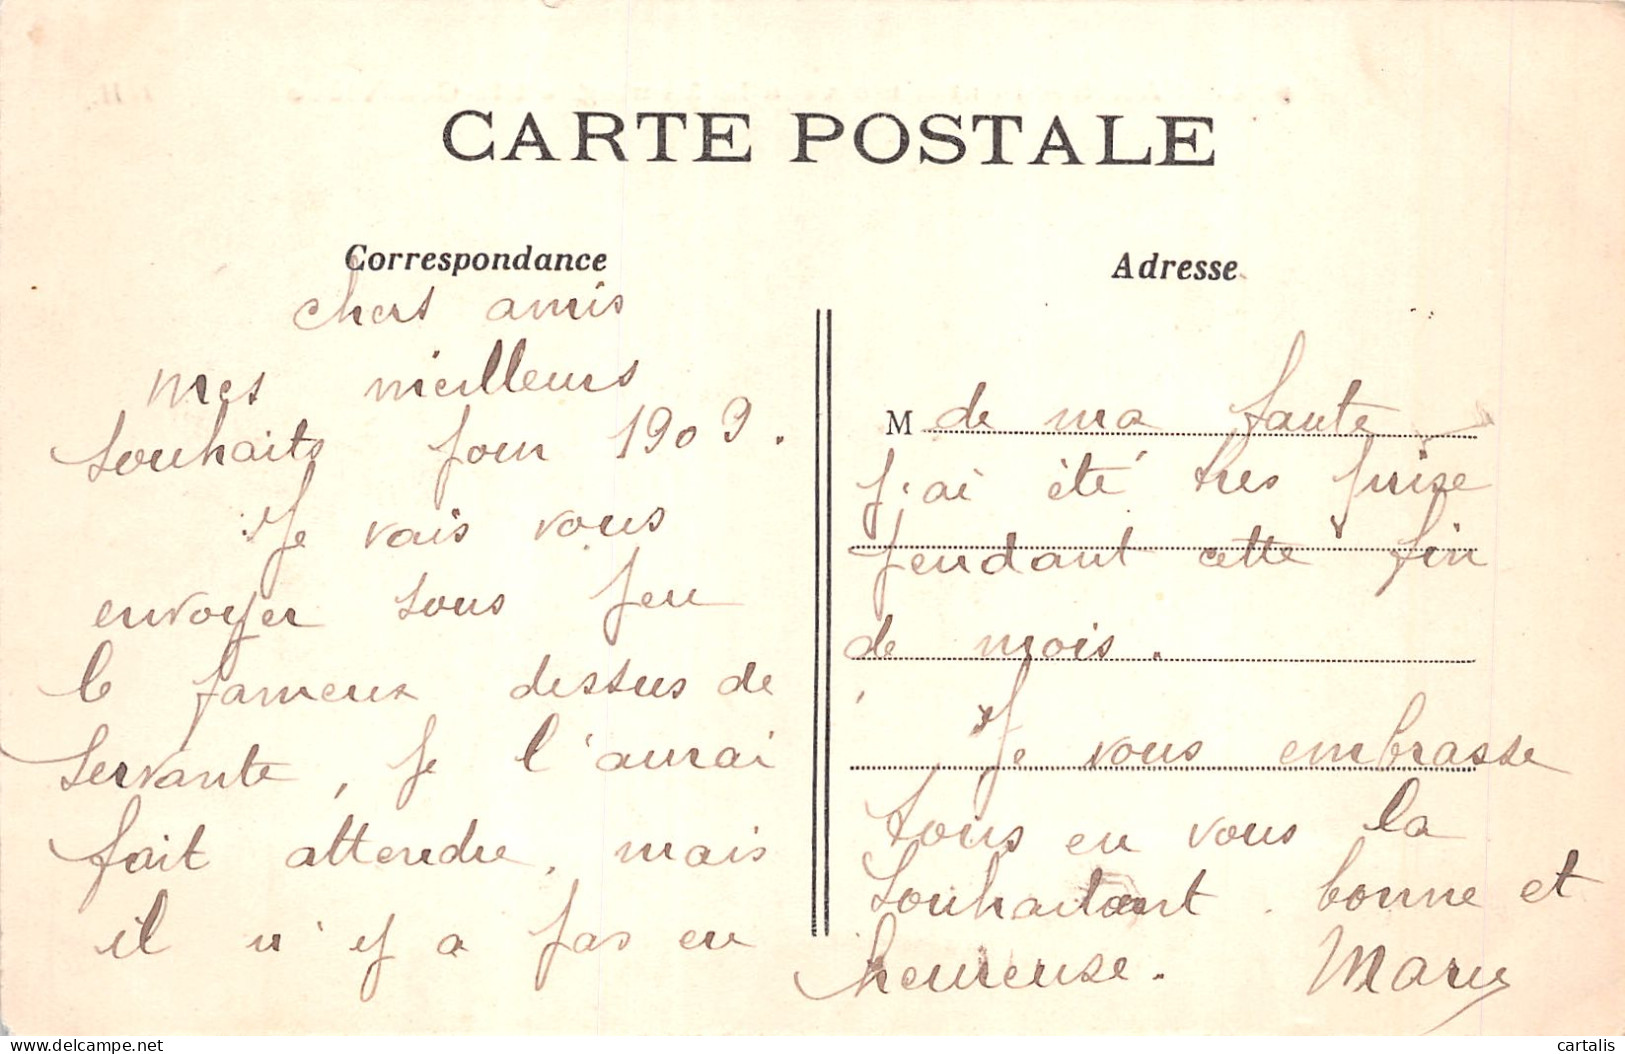 CARTE POSTALE
Correspondance
chers amis
Mes meilleurs
souhaits pour 1909.
Je vais vous
envoyer sous peu
le fameux dessus de
servante, je l'aurai
fait attendre, mais
il n'y a pas eu
Adresse
M de ma faute
j'ai été très prise
pendant cette fin
de mois.
Je vous embrasse
tous en vous la
souhaitant bonne et
heureuse. Marie
cartalis
delcampe.net